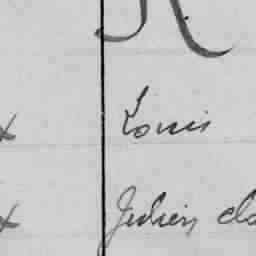 R
x Louis
x Julien